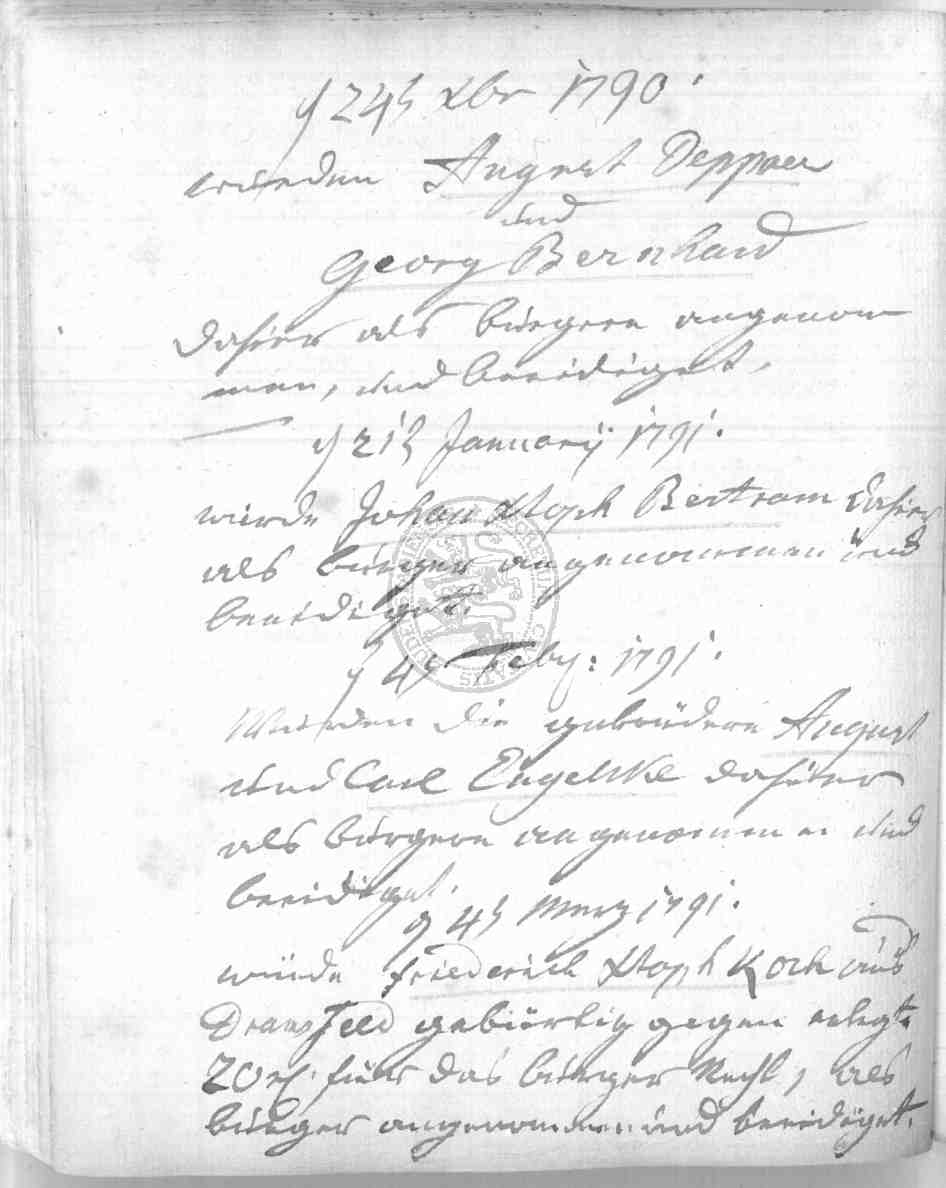 24t Xbr 1790.
wurden August Deppen
und
Georg Bernhard
dahier als bürgere angenom
men, und beeidiget.
21t Januarij 1791.
wurde Johan Xtoph Bertram dahier
als bürger angenommen und
beeidiget.
4t Feby: 1791.
Wurden die gebrüdere August
und Carl Engelke dahier
als bürgere angenommen und
beeidiget.
4t Merz 1791.
wurde Friederich Xtoph Koch aus
Dransfeld gebürtig gegen erlegte
20 rh. für das bürger Recht, als
bürger angenommen und beeidiget.